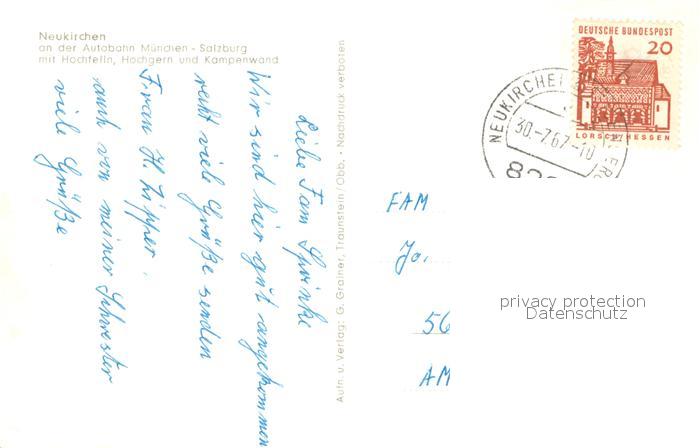 Neukirchen
an der Autobahn München - Salzburg
mit Hochfelln, Hochgern und Kampenwand
Liebe Fam Spinke
Wir sind hier gut angekommen
recht viel Grüße senden
Frau H. Zipper.
auch von meiner Schwester
viele Grüße
Aufn. u. Verlag: G. Grainer, Traunstein/Obb. · Nachdruck verboten
DEUTSCHE BUNDESPOST
20
LORSCH/HESSEN
NEUKIRCHEN
30.-7.67-10
FAM
Jo.
56
AM
privacy protection
Datenschutz